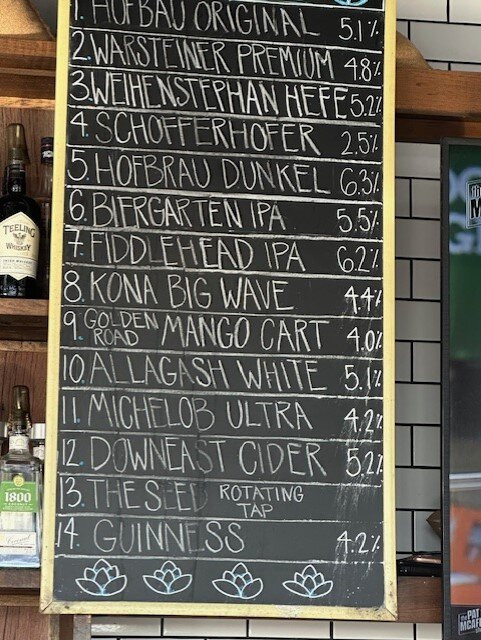 1. HOFBAU ORIGINAL 5.1%
2. WARSTEINER PREMIUM 4.8%
3. WEIHENSTEPHAN HEFE 5.2%
4. SCHOFFERHOFER 2.5%
5. HOFBRAU DUNKEL 6.3%
6. BIERGARTEN IPA 5.5%
7. FIDDLEHEAD IPA 6.2%
8. KONA BIG WAVE 4.4%
9. GOLDEN ROAD MANGO CART 4.0%
10. ALLAGASH WHITE 5.1%
11. MICHELOB ULTRA 4.2%
12. DOWNEAST CIDER 5.2%
13. THE SEED ROTATING TAP
14. GUINNESS 4.2%
TEELING
WHISKEY
1800
the PAT